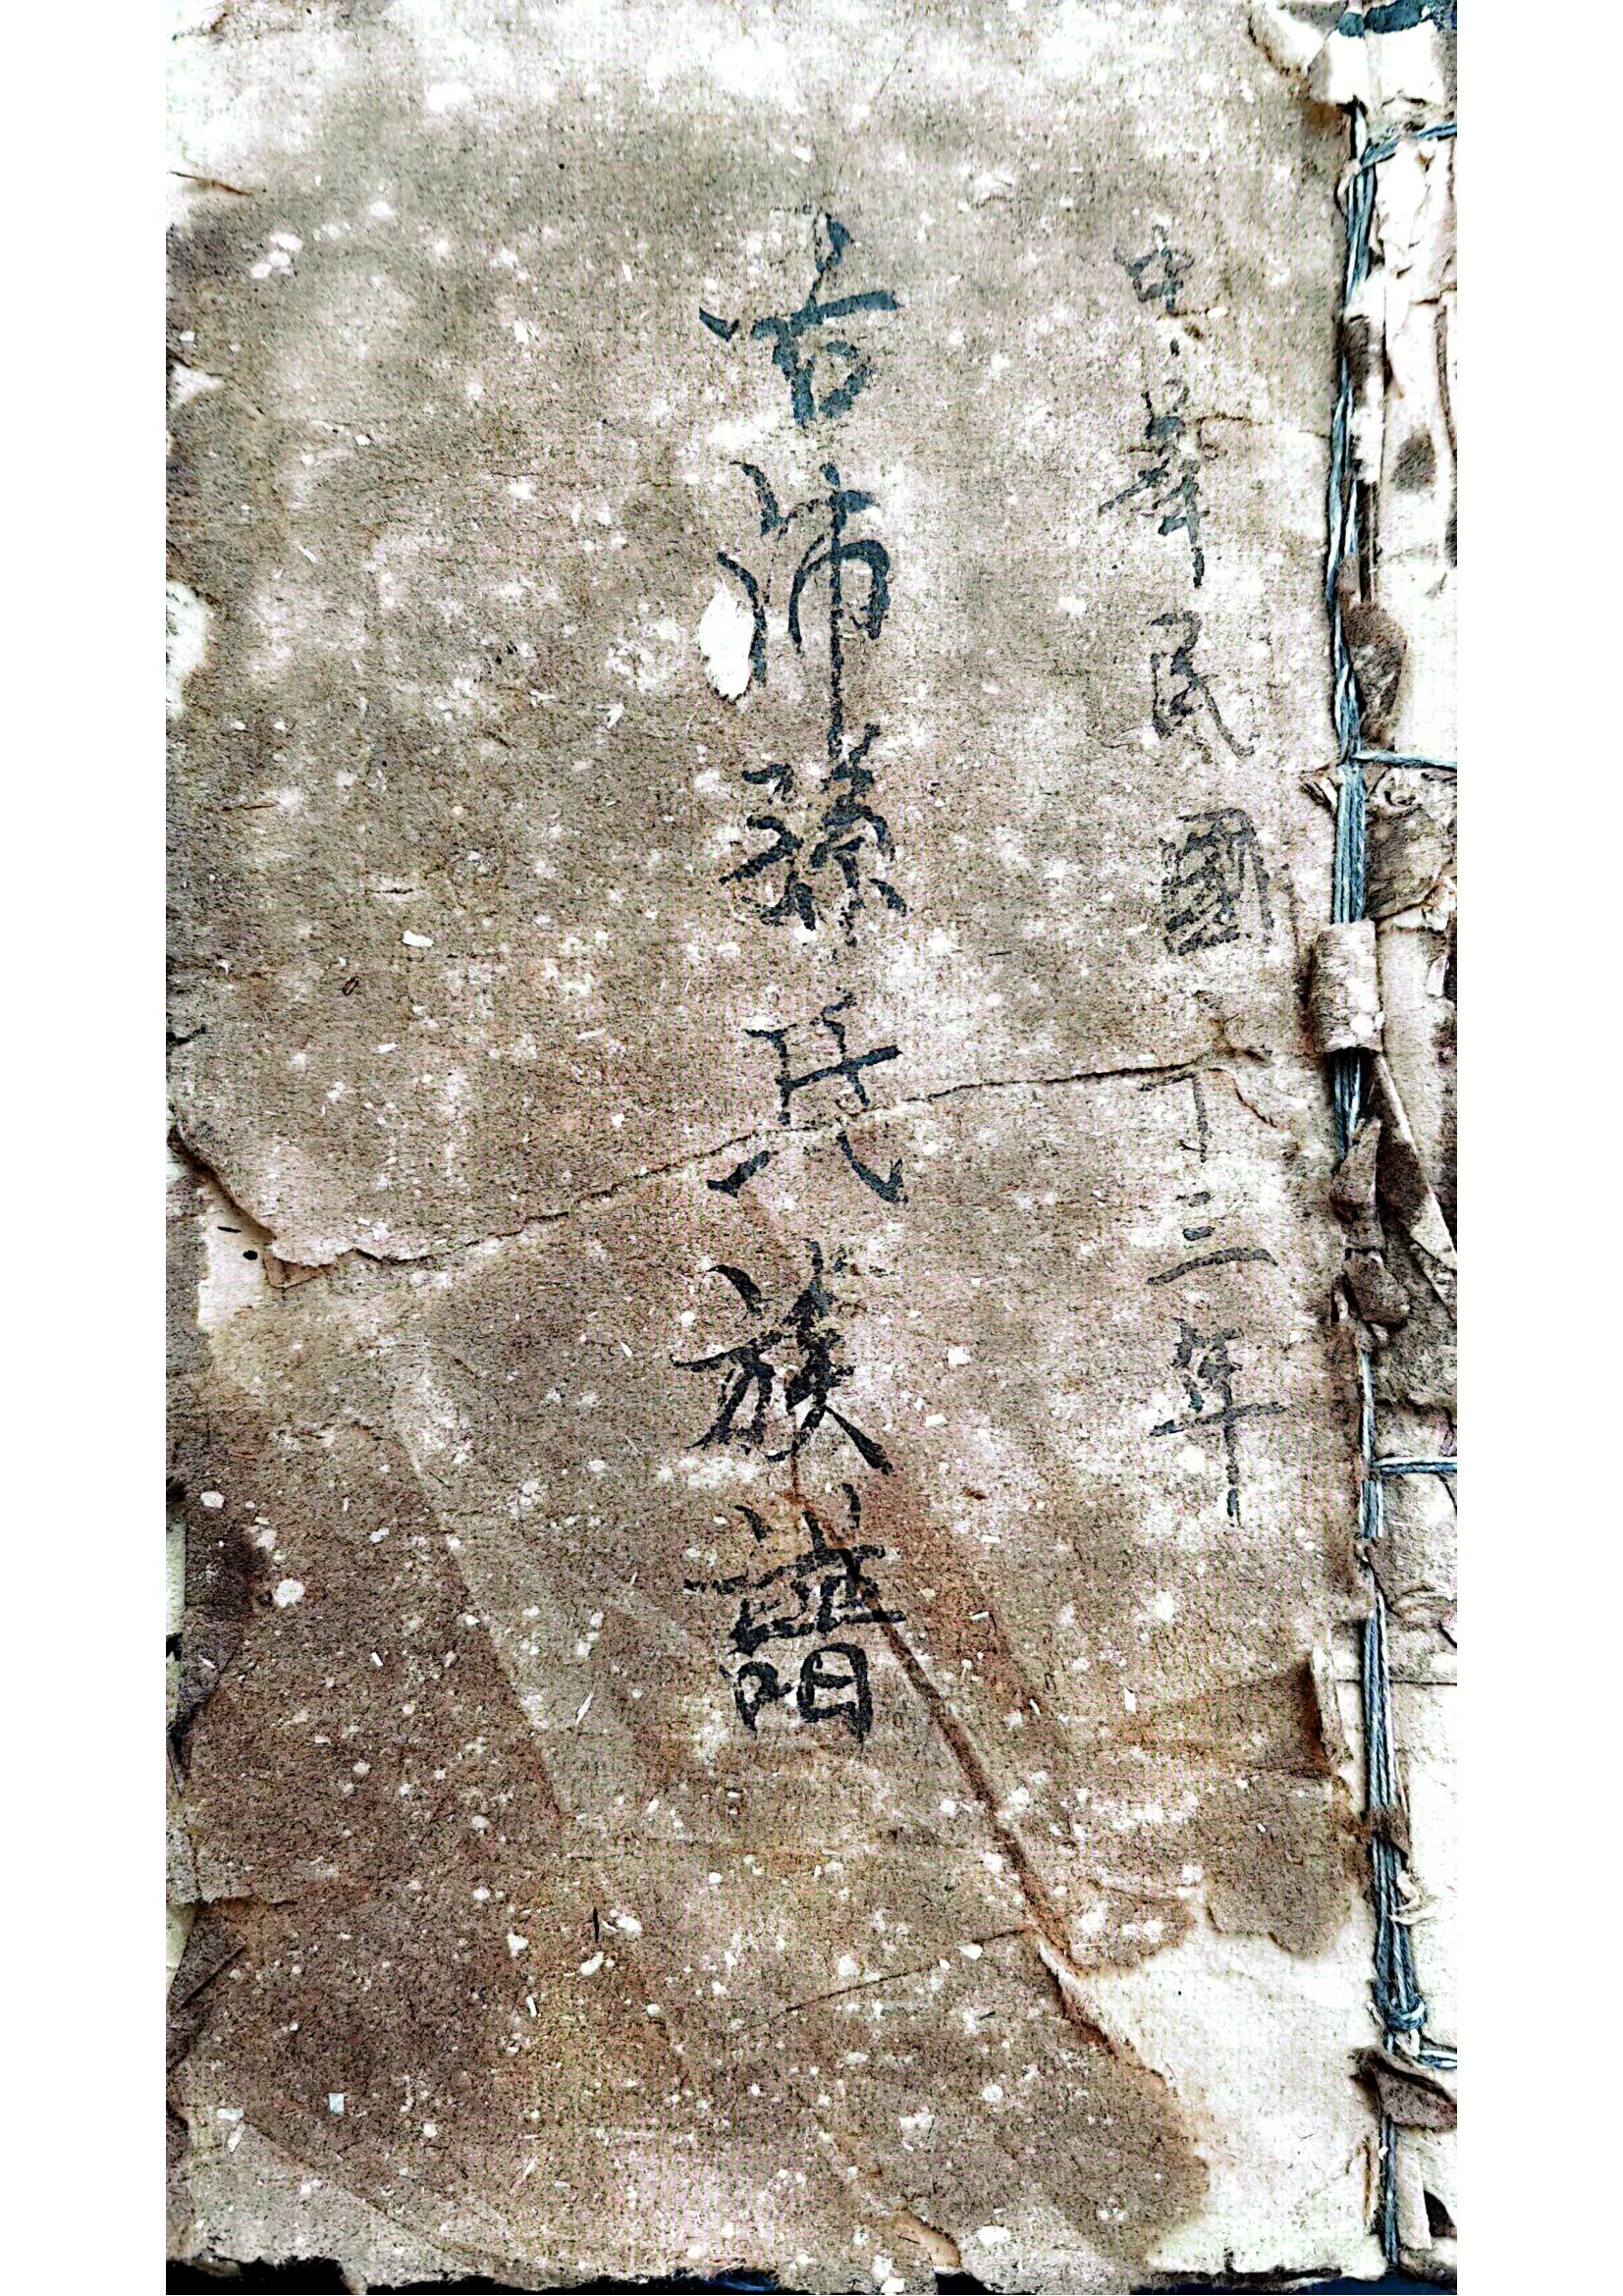 中華民國十三年
古沛孫氏族譜